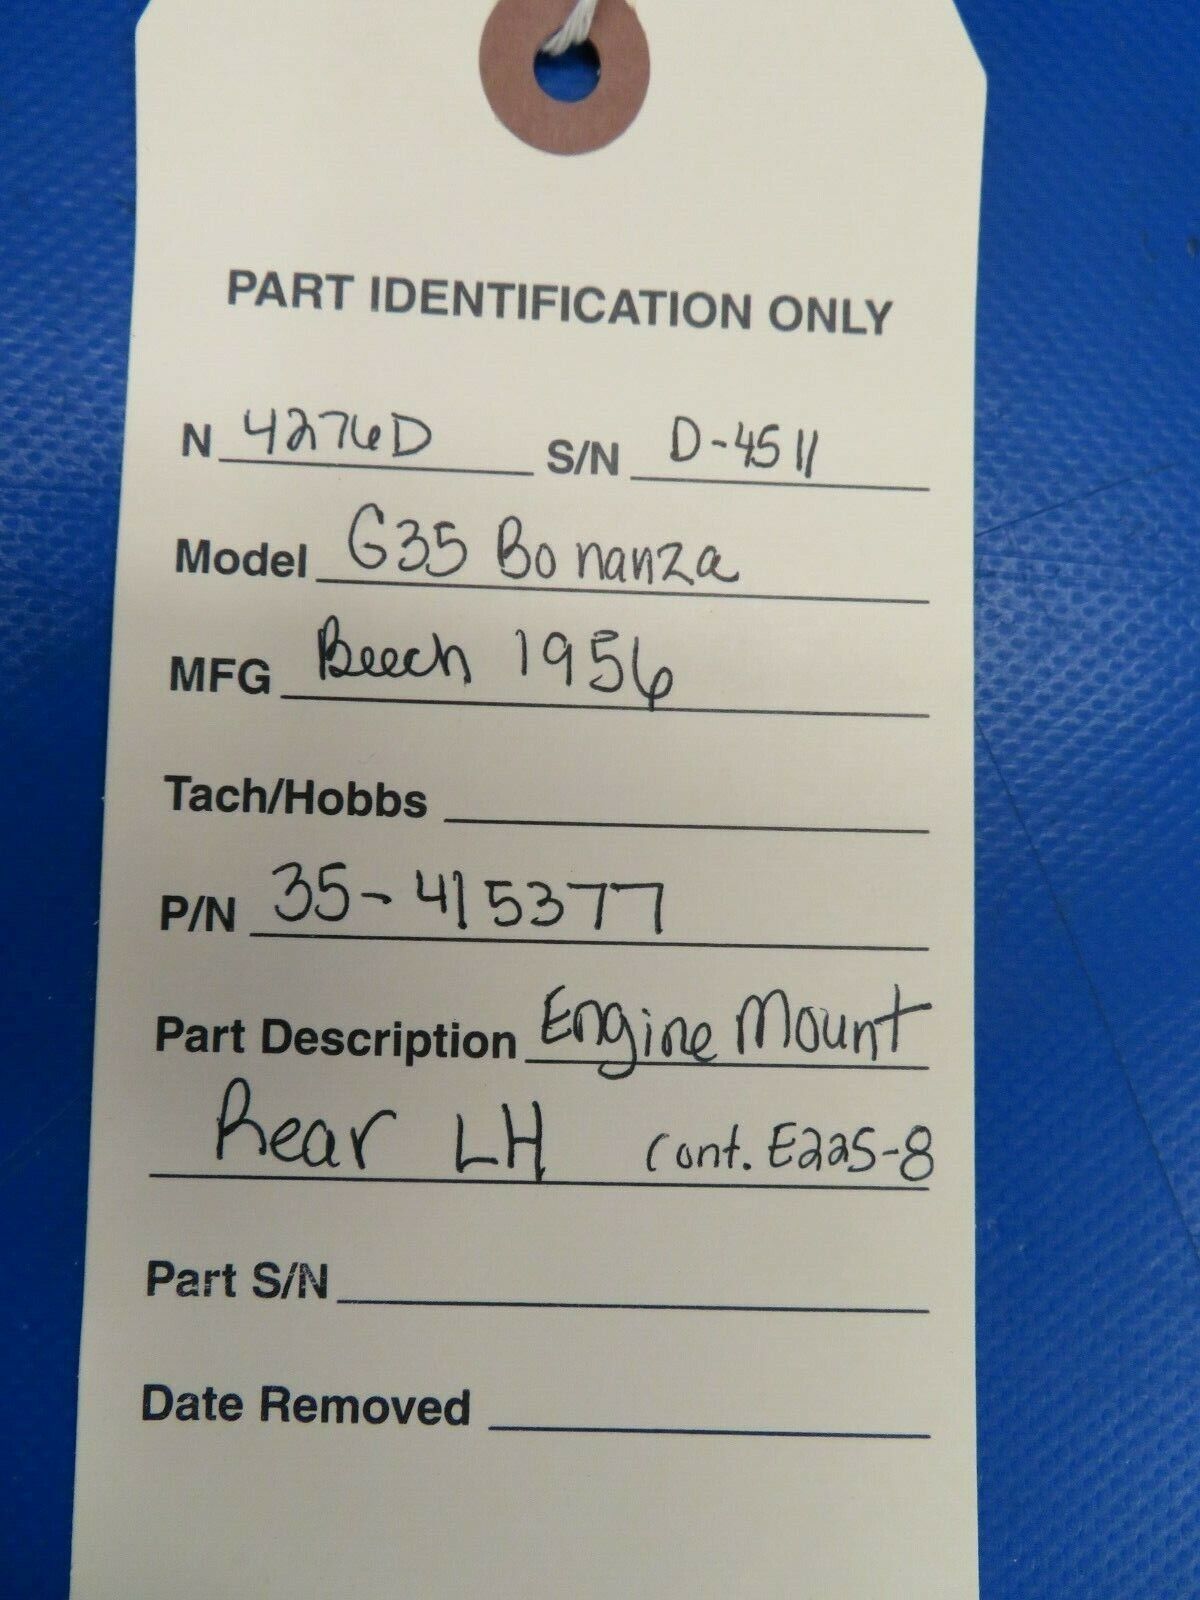 PART IDENTIFICATION ONLY
N 4276D S/N D-4511
Model G35 Bonanza
MFG Beech 1956
Tach/Hobbs
P/N 35-415377
Part Description Engine Mount
Rear LH Cont. E225-8
Part S/N
Date Removed